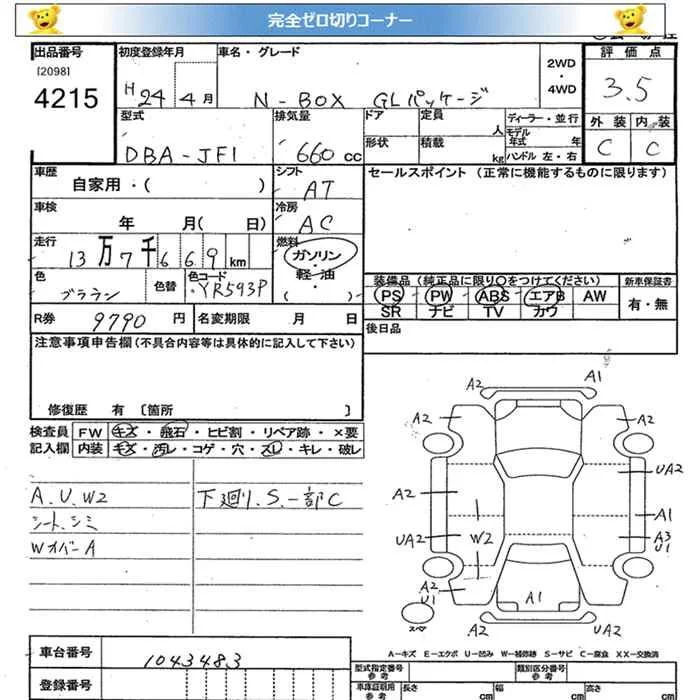 完全ゼロ切りコーナー
出品番号 初度登録年月 車名・グレード 評価点
[2098] 2WD・4WD
4215 H 24 4月 N-BOX GLパッケージ 3.5
型式 排気量 ドア 定員 人 ディーラー・並行 外装 内装
DBA-JF1 660cc 形状 積載 kg モデル年式 年 ハンドル 左・右 C C
車歴 シフト セールスポイント (正常に機能するものに限ります)
自家用・( ) AT
車検 冷房
年 月( 日) AC
走行 燃料
13万7千669km ガソリン
色 色替 色コード 軽・油
ブラウン YR593P ・( )
装備品 (純正品に限り〇をつけてください) 新車保証書
PS PW ABS エアB AW 有・無
SR ナビ TV カワ
R券 9790円 名変期限 月 日 後日品
注意事項申告欄 (不具合内容等は具体的に記入して下さい)
修復歴 有 〔箇所 〕
検査員 FW キズ・飛石・ヒビ割・リペア跡・×要
記入欄 内装 キズ・汚レ・コゲ・穴・スレ・キレ・破レ
A.U.W2 下廻り.S.一部C
シート.シミ
WオバーA
A2 A1
A2 A2
A2 UA2
A1
UA2 W2 A3
U1
A2
U1 A1 A2
スペア A2 UA2
A-キズ E-エクボ U-凹み W-補修跡 S-サビ C-腐食 XX-交換済
車台番号 1043483
型式指定番号 類別区分番号
参考 参考
登録番号 車庫証明用 長さ 幅 高さ
参考 cm cm cm